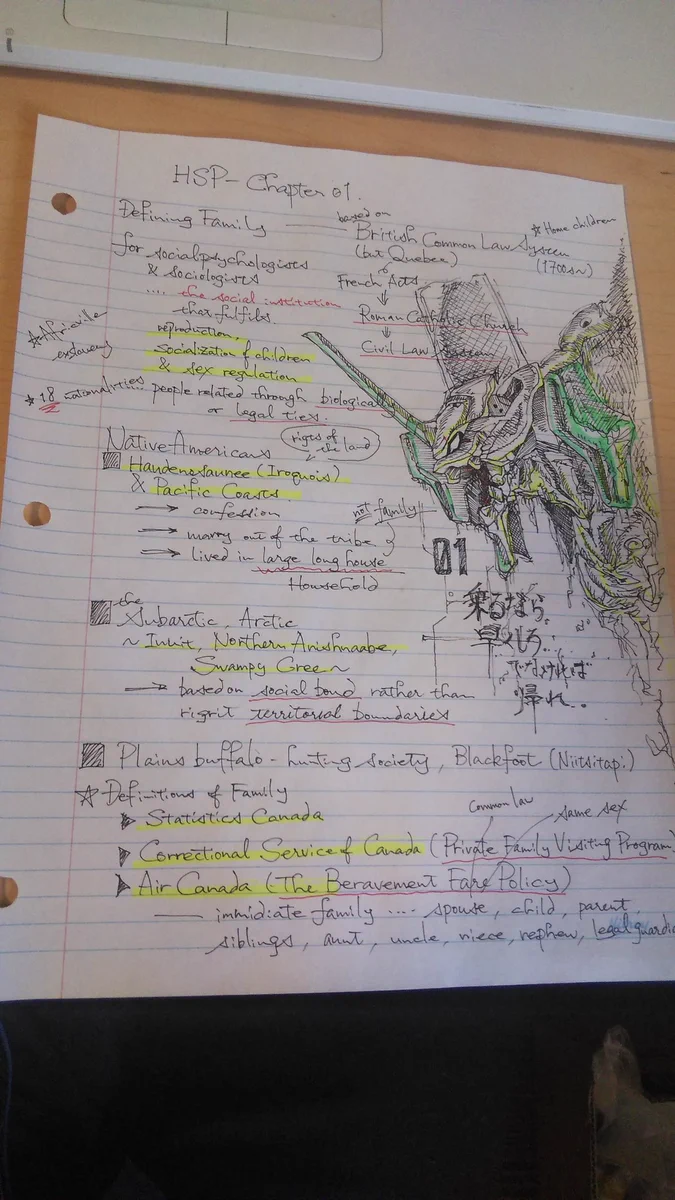 HSP - Chapter 01.
Defining Family
based on
British Common Law System
(but Quebec)
(1700s~)
☆ Home children
French Acts
↓
Roman Catholic Church
↓
Civil Law System
for socialpsychologists
& sociologists
.... the social institution
that fulfils
reproduction,
socialization of children
& sex regulation
☆ Africville
exslavery
★ 18 nationalities
.... people related through biologically
or legal ties.
Native Americans
rigts of the land
Haudenosaunee (Iroquois)
& Pacific Coasts
→ confession
→ marry out of the tribe
→ lived in large long house
Household
not family
01
乗るなら
早くしろ..
でなければ
帰れ..
the
Subarctic, Arctic
~ Inuit, Northern Anishnaabe,
Swampy Cree ~
→ based on social bond rather than
rigrit territorial boundaries
Plains buffalo - hunting society, Blackfoot (Niitsitapi)
☆ Definitions of Family
▶ Statistics Canada
common law
same sex
▶ Correctional Service of Canada (Private Family Visiting Program)
▶ Air Canada (The Beravement Fare Policy)
— immidiate family .... spouse, child, parent,
siblings, aunt, uncle, niece, nephew, legal guardia